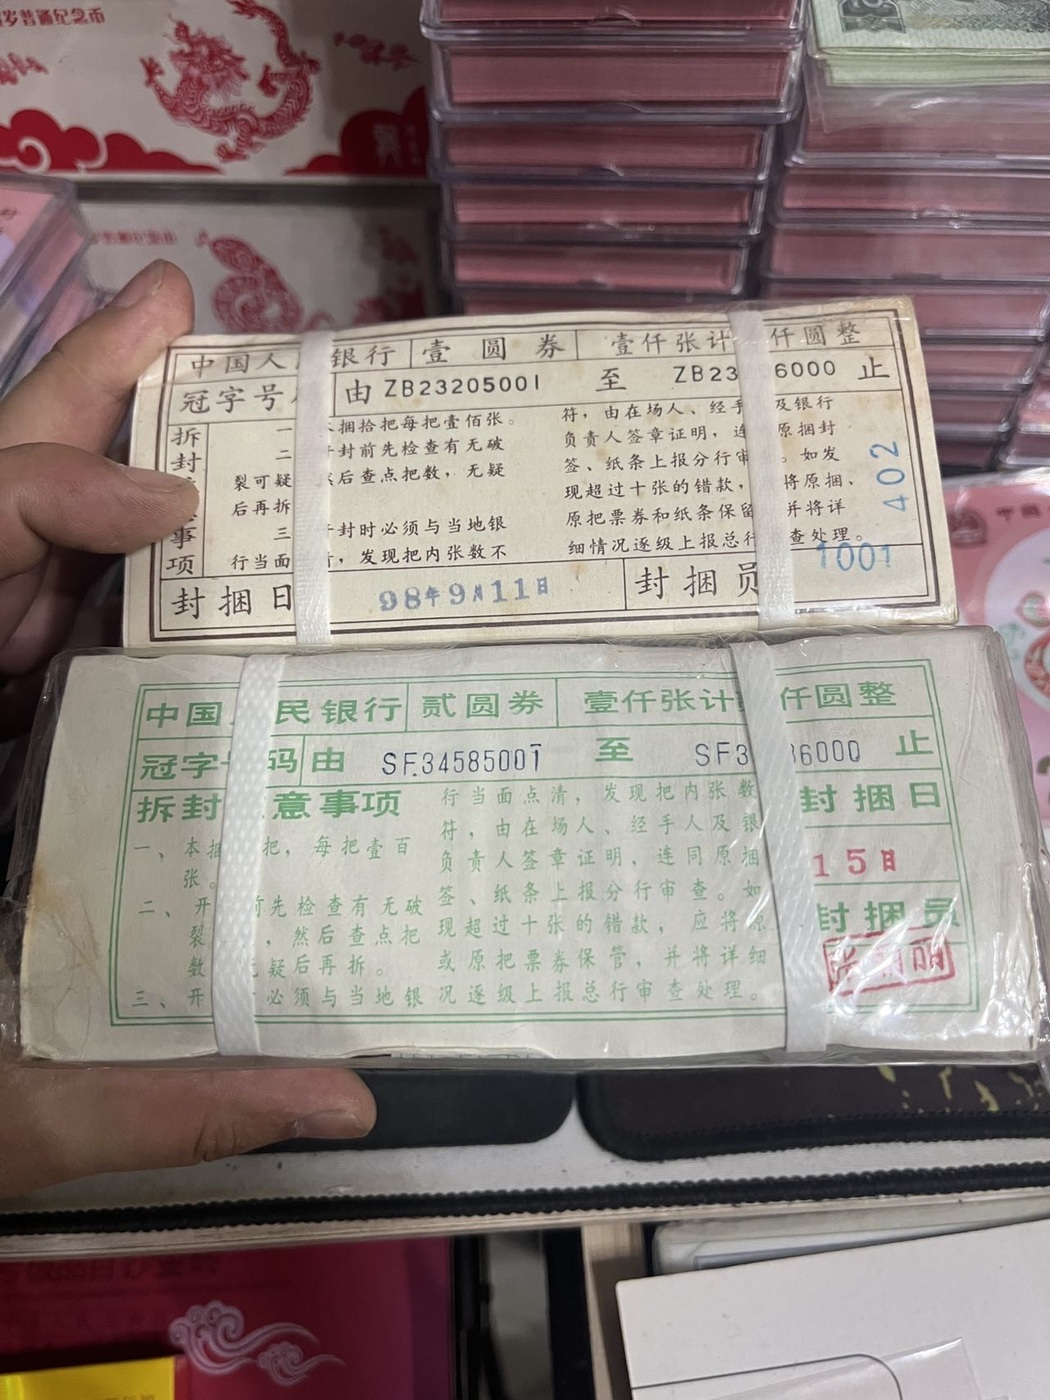 普通纪念币
中国人 银行 壹圆券 壹仟张计 仟圆整
冠字号 由 ZB23205001 至 ZB23 6000 止
拆封 事项
一 捆拾把每把壹佰张。
二 封前先检查有无破
裂可疑 后查点把数，无疑
后再拆
三 封时必须与当地银
行当面 ，发现把内张数不
符，由在场人、经手 及银行
负责人签章证明，连 原捆封
签、纸条上报分行审 。如发
现超过十张的错款， 将原捆、
原把票券和纸条保留 并将详
细情况逐级上报总行 查处理。
402
1001
封捆日 98年9月11日 封捆员
中国 民银行 贰圆券 壹仟张计 仟圆整
冠字 码 由 SF34585001 至 SF3 86000 止
拆封 意事项
一、本捆 把，每把壹百
张。
二、开 前先检查有无破
裂 ，然后查点把
数 无疑后再拆。
三、开 必须与当地银
行当面点清，发现把内张数
符，由在场人、经手人及银
负责人签章证明，连同原捆
签、纸条上报分行审查。如
现超过十张的错款，应将原
或原把票券保管，并将详细
况逐级上报总行审查处理。
封捆日
15日
封捆员